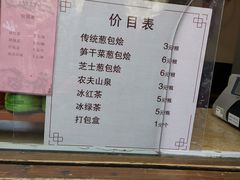 价目表
传统葱包烩 3元/根
笋干菜葱包烩 6元/根
芝士葱包烩 6元/根
农夫山泉 3元/瓶
冰红茶 5元/瓶
冰绿茶 5元/瓶
打包盒 1元/个